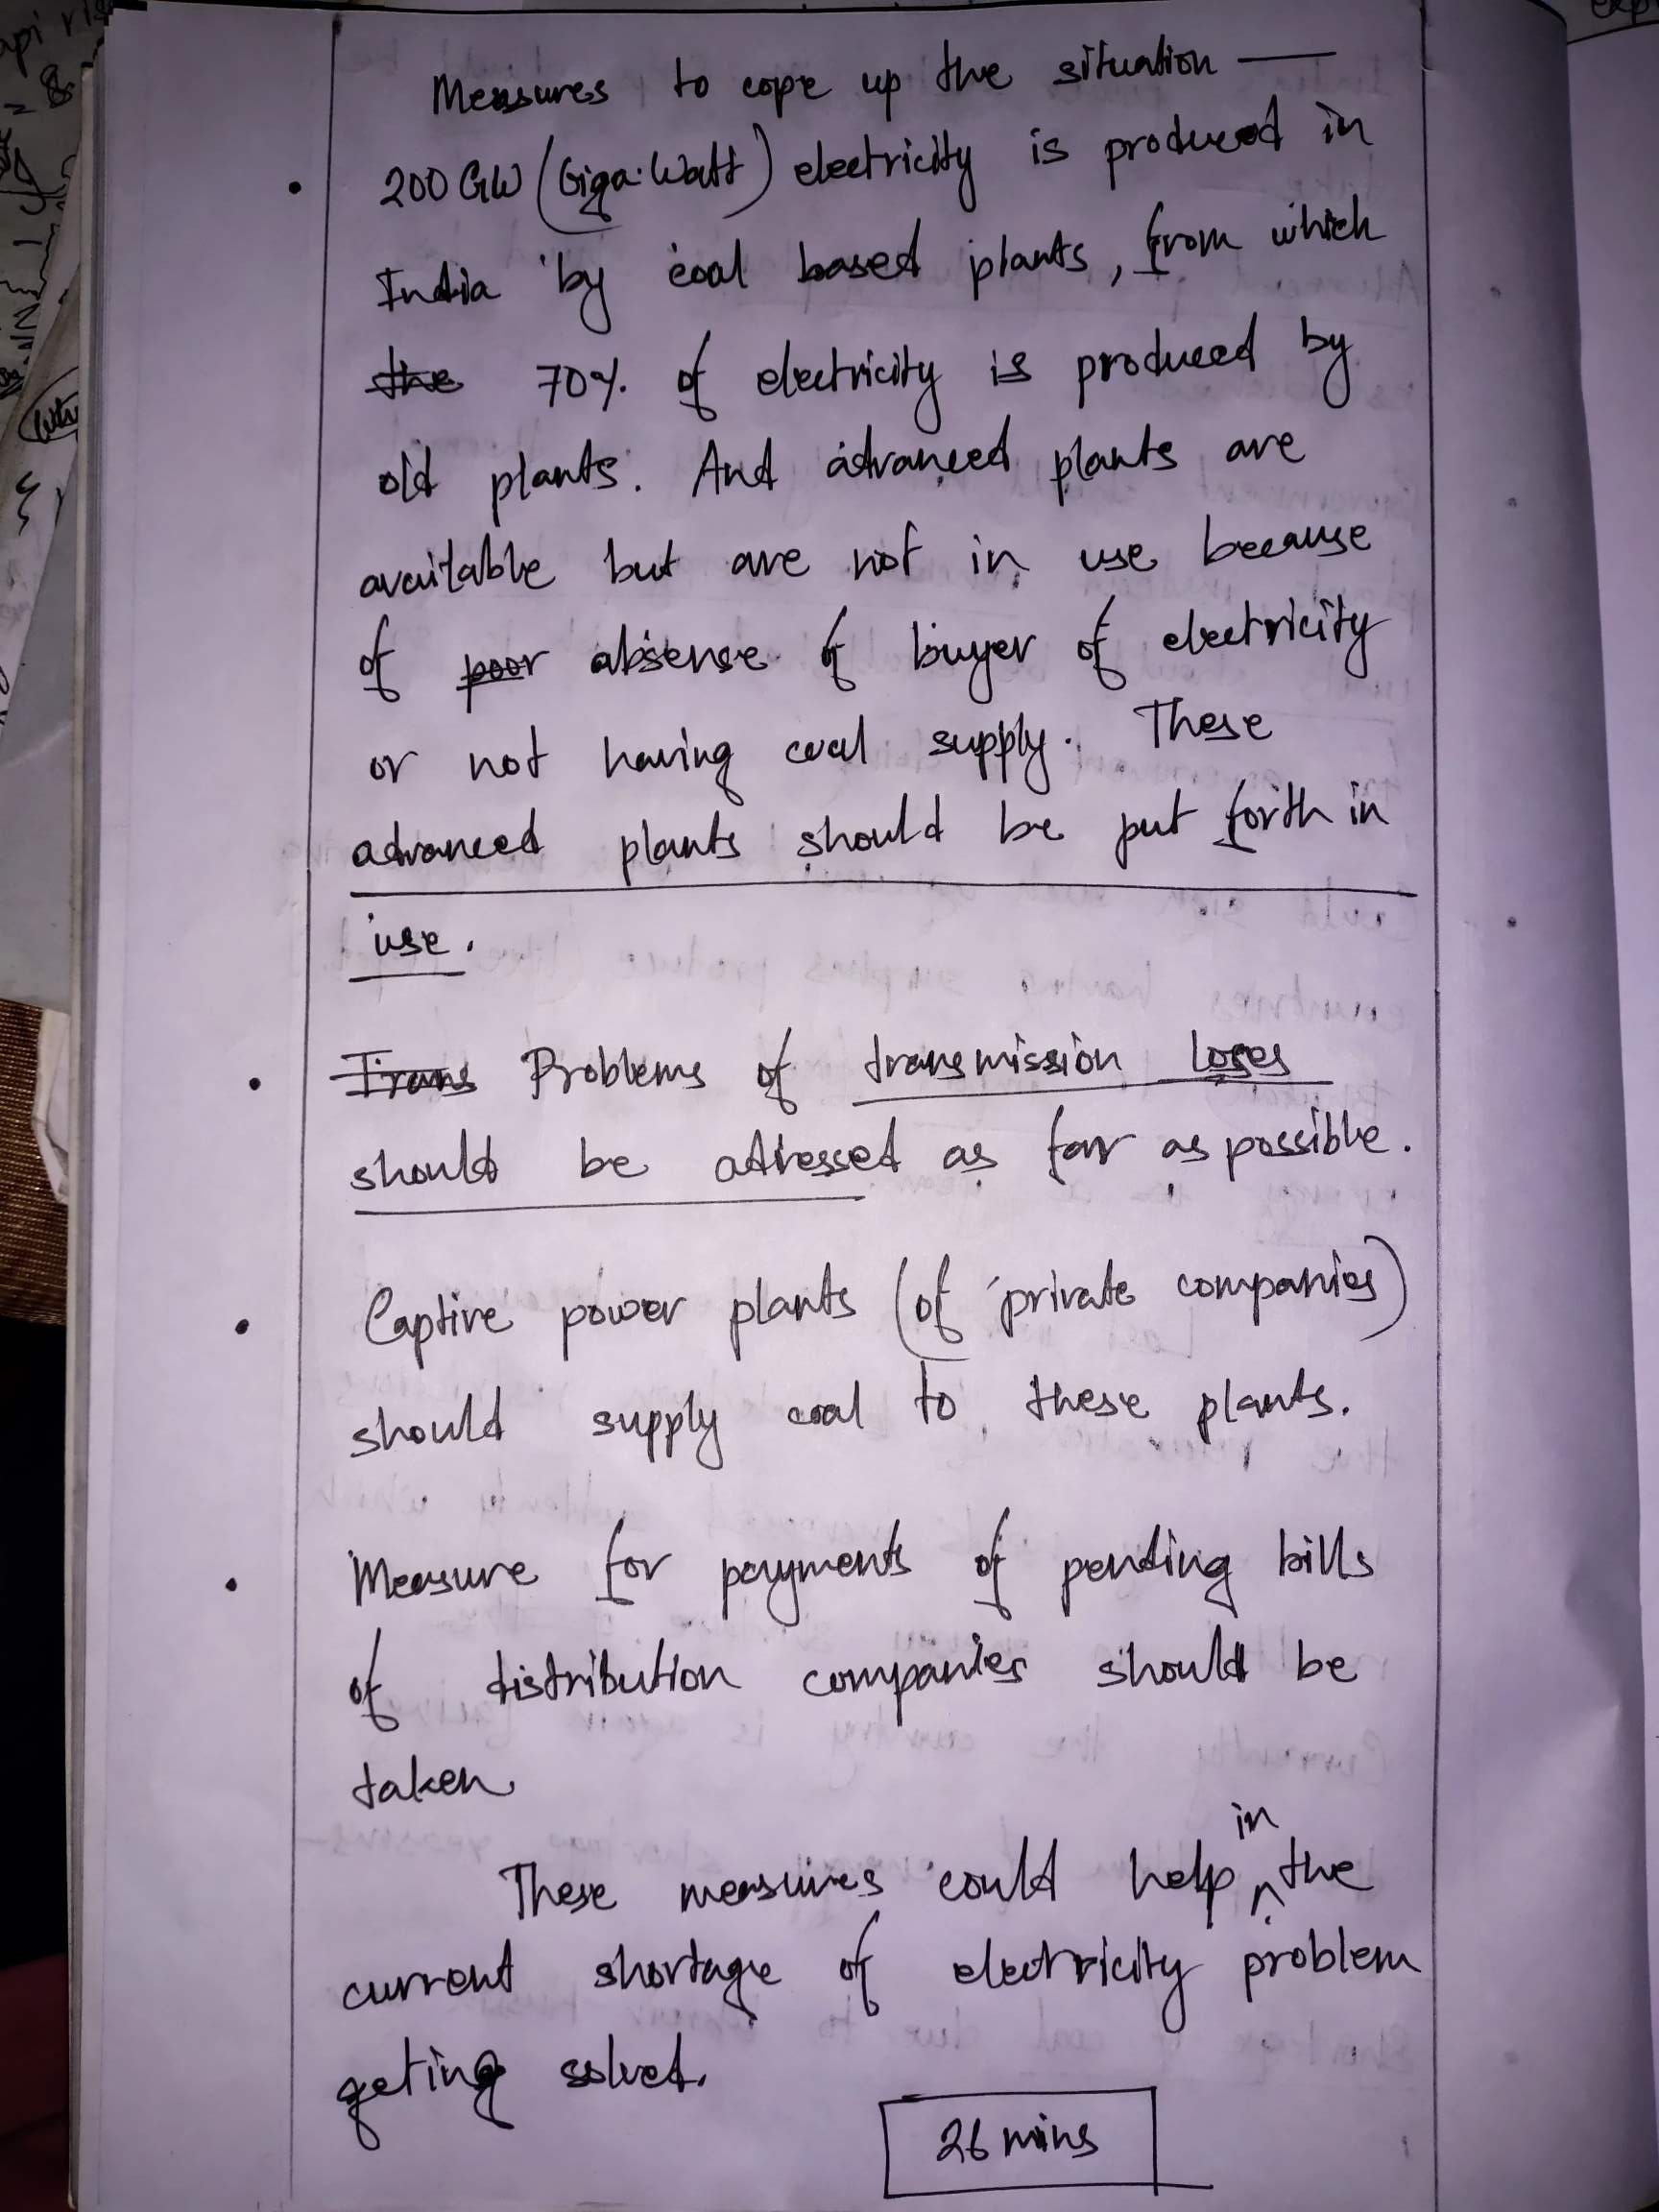 Measures to cope up the situation —
• 200 GW (Giga-Watt) electricity is produced in
India by coal based plants, from which
the 70% of electricity is produced by
old plants. And advanced plants are
available but are not in use because
of poor absense of buyer of electricity
or not having coal supply. These
advanced plants should be put forth in
use.
• Trans Problems of transmission loses
should be adressed as far as possible.
• Captive power plants (of private companies)
should supply coal to these plants.
• Measure for payments of pending bills
of distribution companies should be
taken
These measures could help in the
current shortage of electricity problem
geting solved.
26 mins